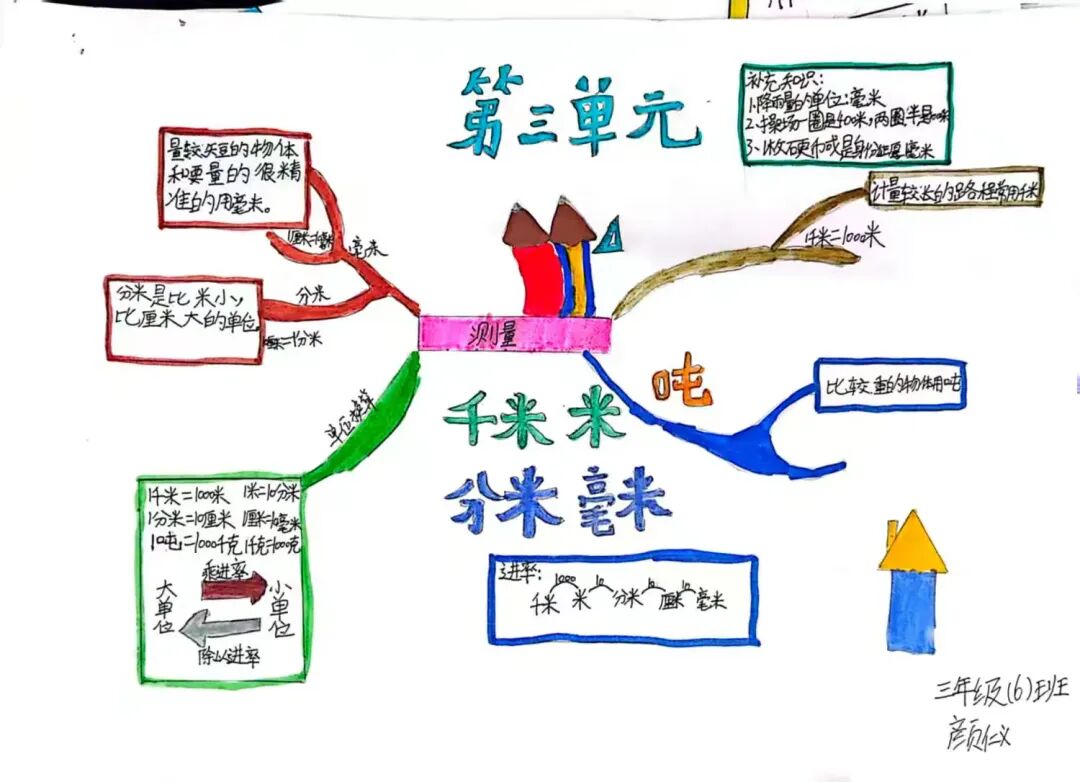 第三单元
补充知识：
1.降雨量的单位：毫米
2、操场一圈是400米，两圈半是
3、1枚硬币或是身份证厚毫米
量较短的物体
和要量的很精
准的用毫米。
1厘米=10毫米
毫米
计量较长的路程常用千米
1千米=1000米
分米是比米小，
比厘米大的单位。
分米
1
测量
吨
比较重的物体用吨
单位换算
千米 米
分米 毫米
1千米=1000米 1米=10分米
1分米=10厘米 1厘米=10毫米
1吨=1000千克 1千克=1000克
乘进率
大单位
小单位
除以进率
进率：
1000 10 10 10
千米 米 分米 厘米 毫米
三年级(6)班
颜仁义